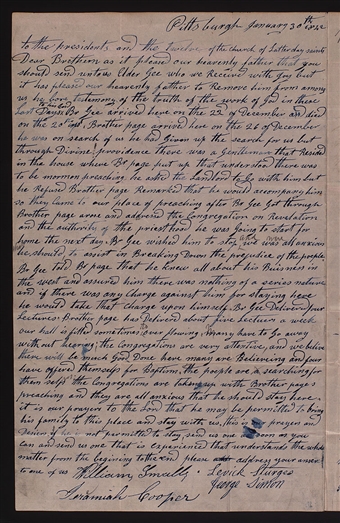 Pittsburgh January 30th 1842
to the presidents and the Twelve of the church of Latterday saints
Dear Brethern as it pleased our heavenly father that you
should send unto us Elder Gee who we Receivd with Joy but
it has please our heavenly father to Remove him from among
us he bore testimony of the truth of the work of God in these
Last Days Br Gee arrived here on the 22 of December and died
on the 20 Brother page arrived here on the 26 of December
he was on search of us he had Given up the search for us but
through Divine providence there was a Gentleman that Resided
in the house where Br page put up that understood there was
to be mormon preaching he asked the Landlord to Go with him but
he Refused Brother page Remarked that he would accompany him
so they came to our place of preaching after Br Gee Got through
Brother page arose and addressed the Congregation on Revelation
and the authority of the priesthood he was going to start for
home the next day Br Gee wished him to stop was all anxious
he should to assist in Breaking Down the prejudice of the people
Br Gee told Br page that he knew all about his Buisness in
the west and assured him there was nothing of a series nature
and if there was any charge against him for staying here
he would take that charge upon himself Br Gee Deliverd four
Lectures Brother page has Deliverd about five Lectures a week
our hall is filled sometimes over flowing many have to Go away
without hearing the Congregations are very attentive, and we believe
there will be much Good Done here many are Believing and four
have offered themselfs for Baptism, the people are searching for
them selfs the Congregations are taken up with Brother pages
preaching and they are all anxious that he should stay here
it is our prayers to the Lord that he may be permitted to bring
his family to this place and stay with us, this is our prayer and
Desire if he is not permitted to stay send us one as soon as you
can and send us one that is Experienced that understands the whole
matter from the begining to the end please address your answer
to one of us William Small Levick Sturges
Jeremiah Cooper George